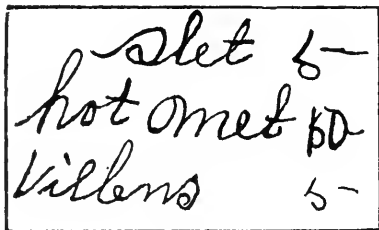 slet 5-
hot omet 50-
Villens 5-